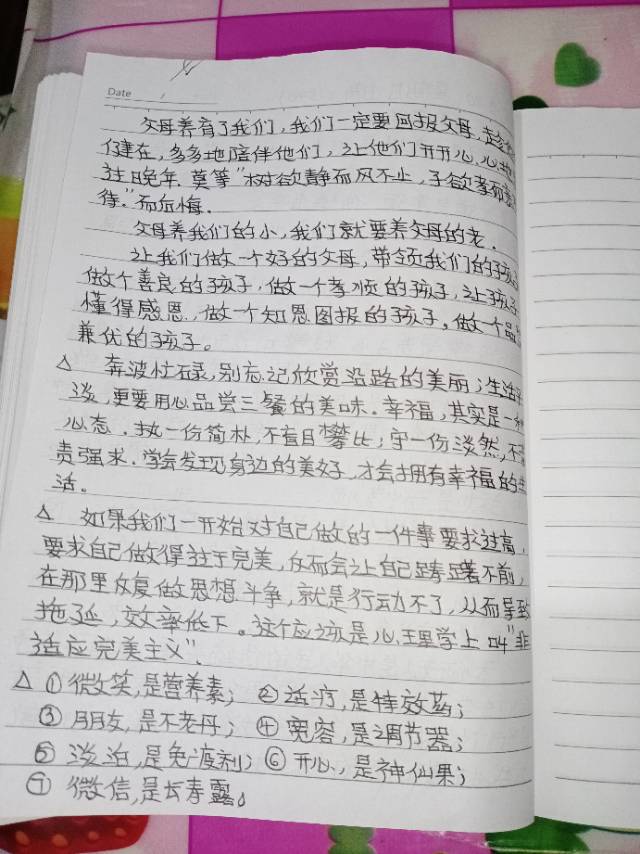 Date
父母养育了我们，我们一定要回报父母，趁
健在，多多地陪伴他们，让他们开开心心地
往晚年。莫等“树欲静而风不止，子欲孝而亲
待。”而后悔。
父母养我们的小，我们就要养父母的老。
让我们做一个好的父母，带领我们的孩子
做个善良的孩子，做一个孝顺的孩子，让孩子
懂得感恩，做一个知恩图报的孩子。做一个品
兼优的孩子。
△ 奔波忙碌，别忘记欣赏沿路的美丽；生活平
淡，更要用心品尝三餐的美味。幸福，其实是一种
心态。执一份简朴，不盲目攀比；守一份淡然，不
责强求。学会发现身边的美好，才会拥有幸福的生
活。
△ 如果我们一开始对自己做的一件事要求过高，
要求自己做得过于完美，反而会让自己踌躇不前，
在那里反复做思想斗争，就是行动不了，从而导致
拖延，效率低下。这个应该是心理学上叫“非
适应完美主义”。
△ ①微笑，是营养素； ②活疗，是特效药；
③朋友，是不老丹； ④宽容，是调节器；
⑤淡泊，是免疫剂； ⑥开心，是神仙果；
⑦微信，是长寿露。